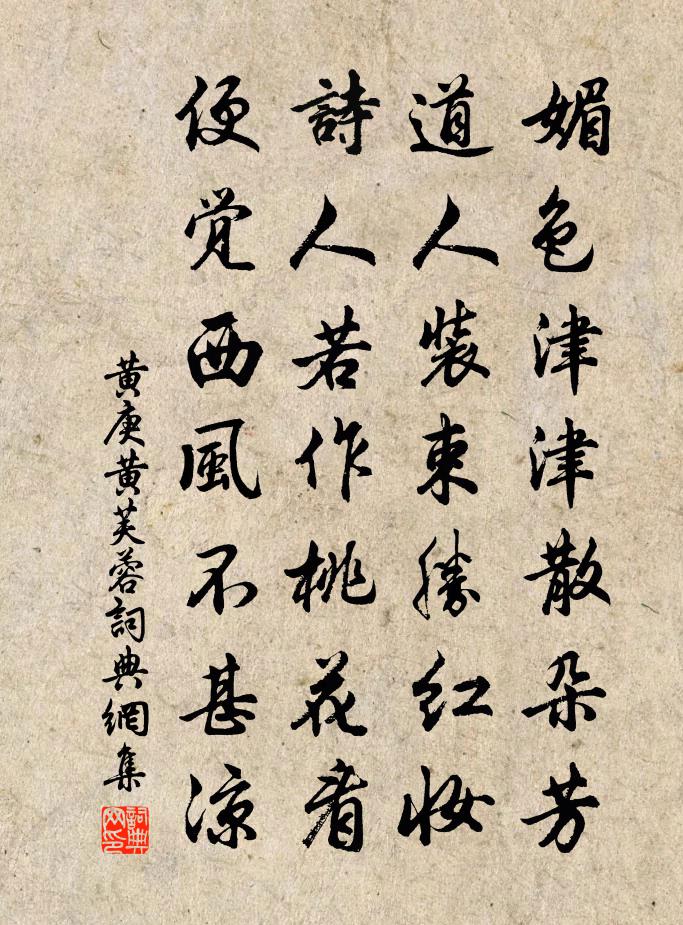 媚色津津散朵芳
道人裝束勝红妝
詩人若作桃花看
便觉西風不甚凉
黄庚黄芙蓉詞典網集
詞典网印